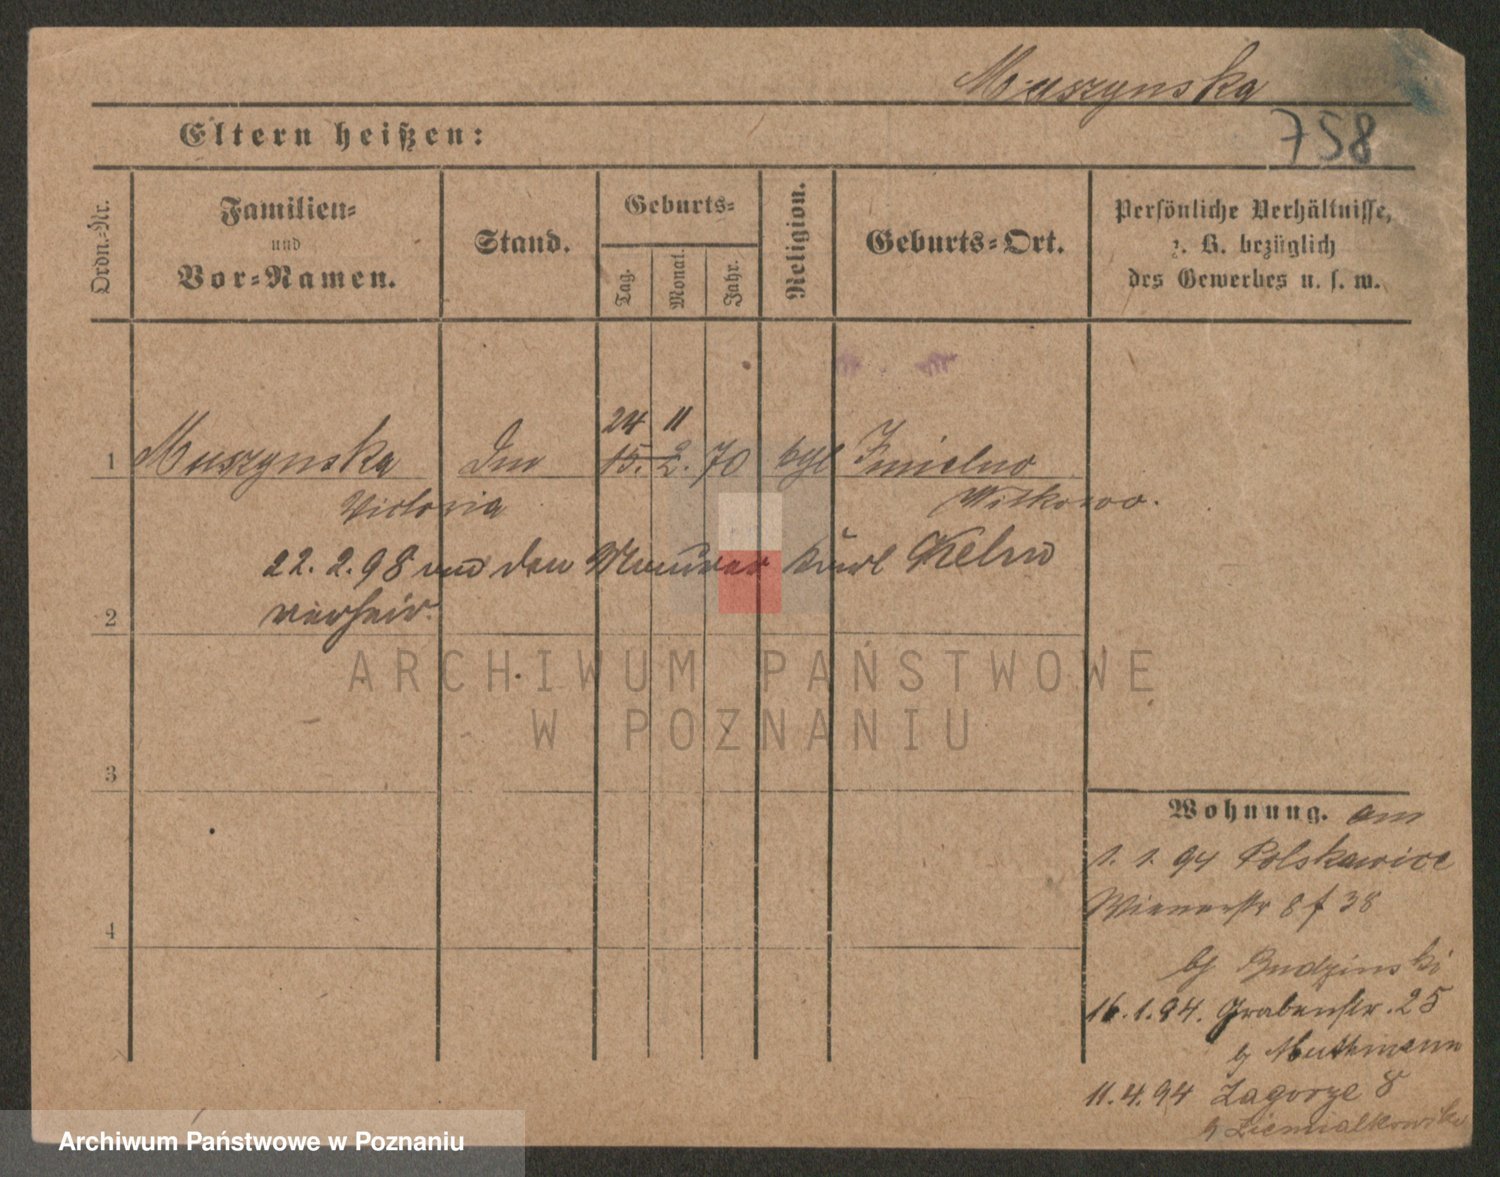 Muszynska
Eltern heißen:
758
Ordn.-Nr.
Familien-
und
Vor-Namen.
Stand.
Geburts-
Tag.
Monat.
Jahr.
Religion.
Geburts-Ort.
Persönliche Verhältnisse,
z. B. bezüglich
des Gewerbes u. s. w.
24 11
1 Muszynska 15. 2. 70 Imielno
Victoria Witkowo.
22. 2. 98 den Maurer Karl
2 verheir.
ARCHIWUM PAŃSTWOWE
W POZNANIU
3
Wohnung. am
1. 1. 94 Polskawice
Wienerstr 8 f 38
4
Budzinski
16. 1. 94. Grabenstr. 25
Muthmann
11. 4. 94 Zagorze 8
Archiwum Państwowe w Poznaniu